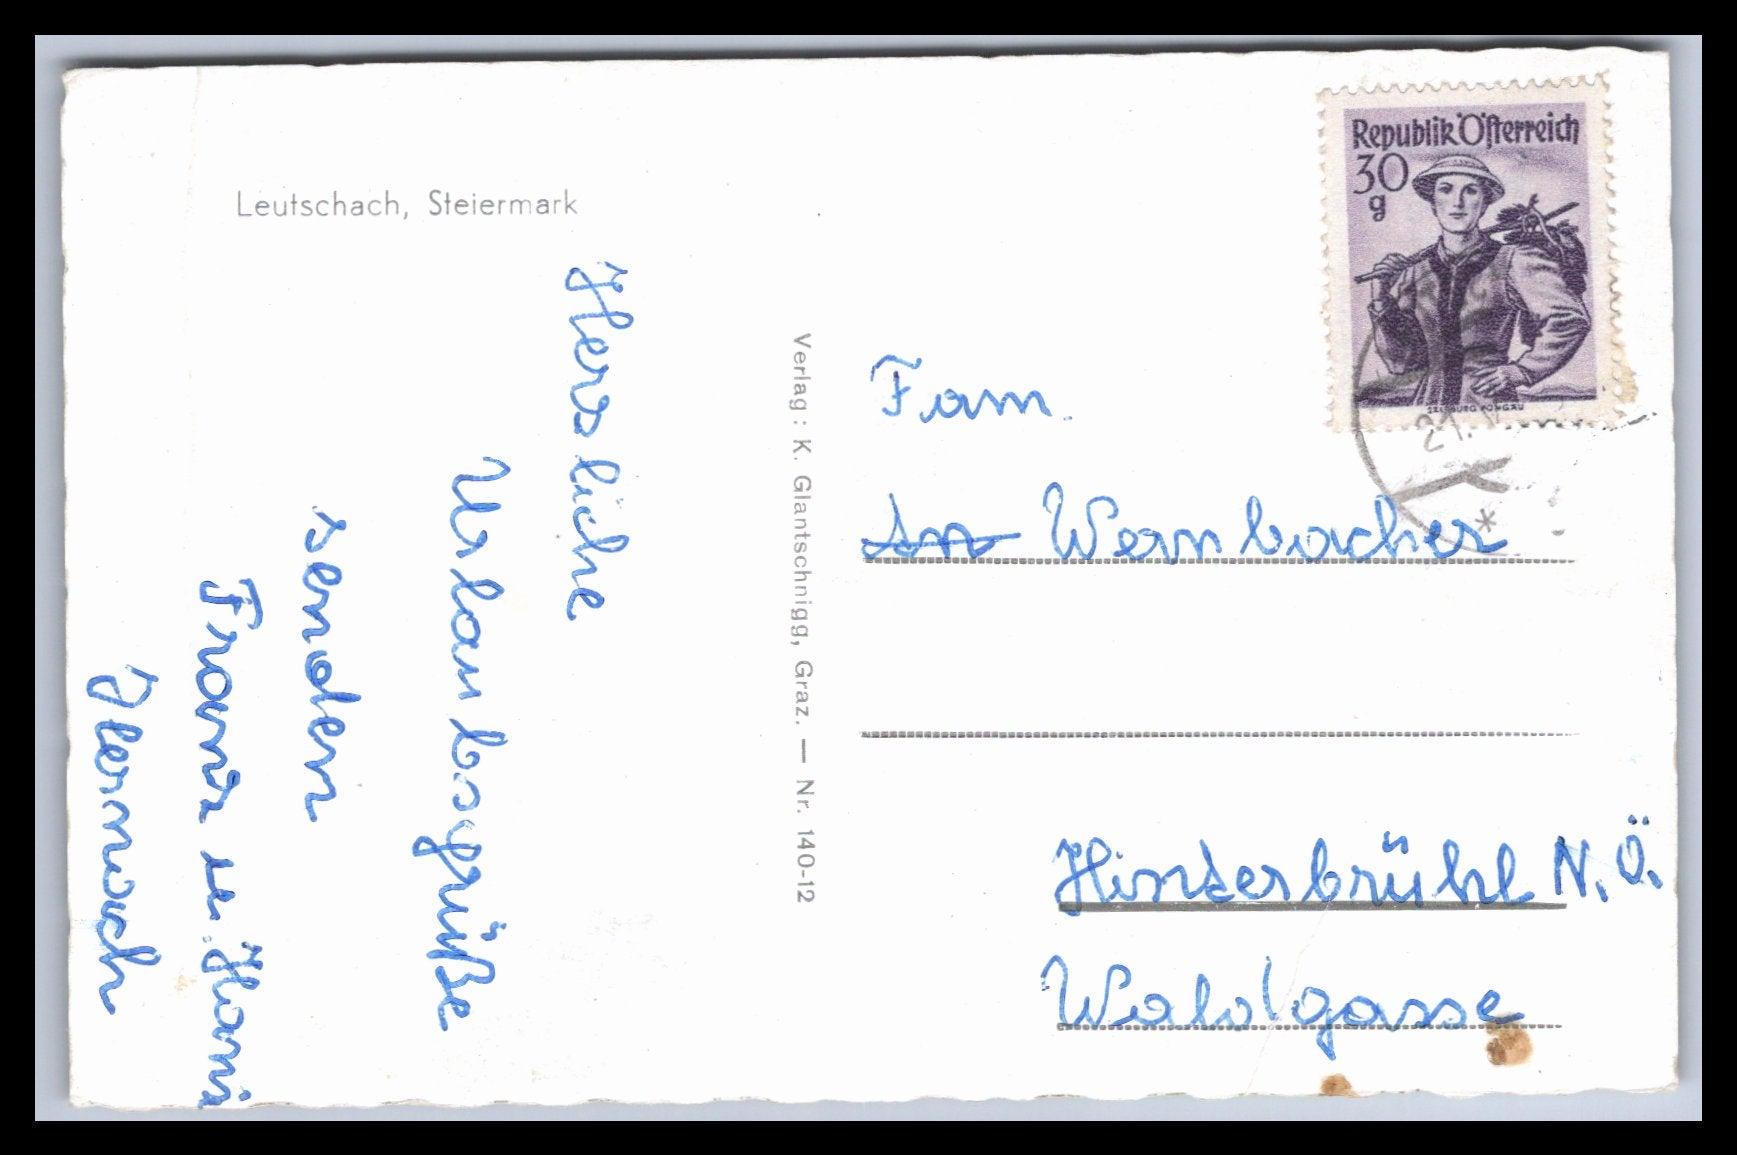 Leutschach, Steiermark
Herzliche
Urlaubsgrüße
senden
Franz u. Hani
Jlernuch
Verlag: K. Glantschnigg, Graz. — Nr. 140-12
Republik Österreich
30
g
SALZBURG PONGAU
21.
Fam.
An Wernbacher
Hinterbrühl N.Ö.
Waldgasse